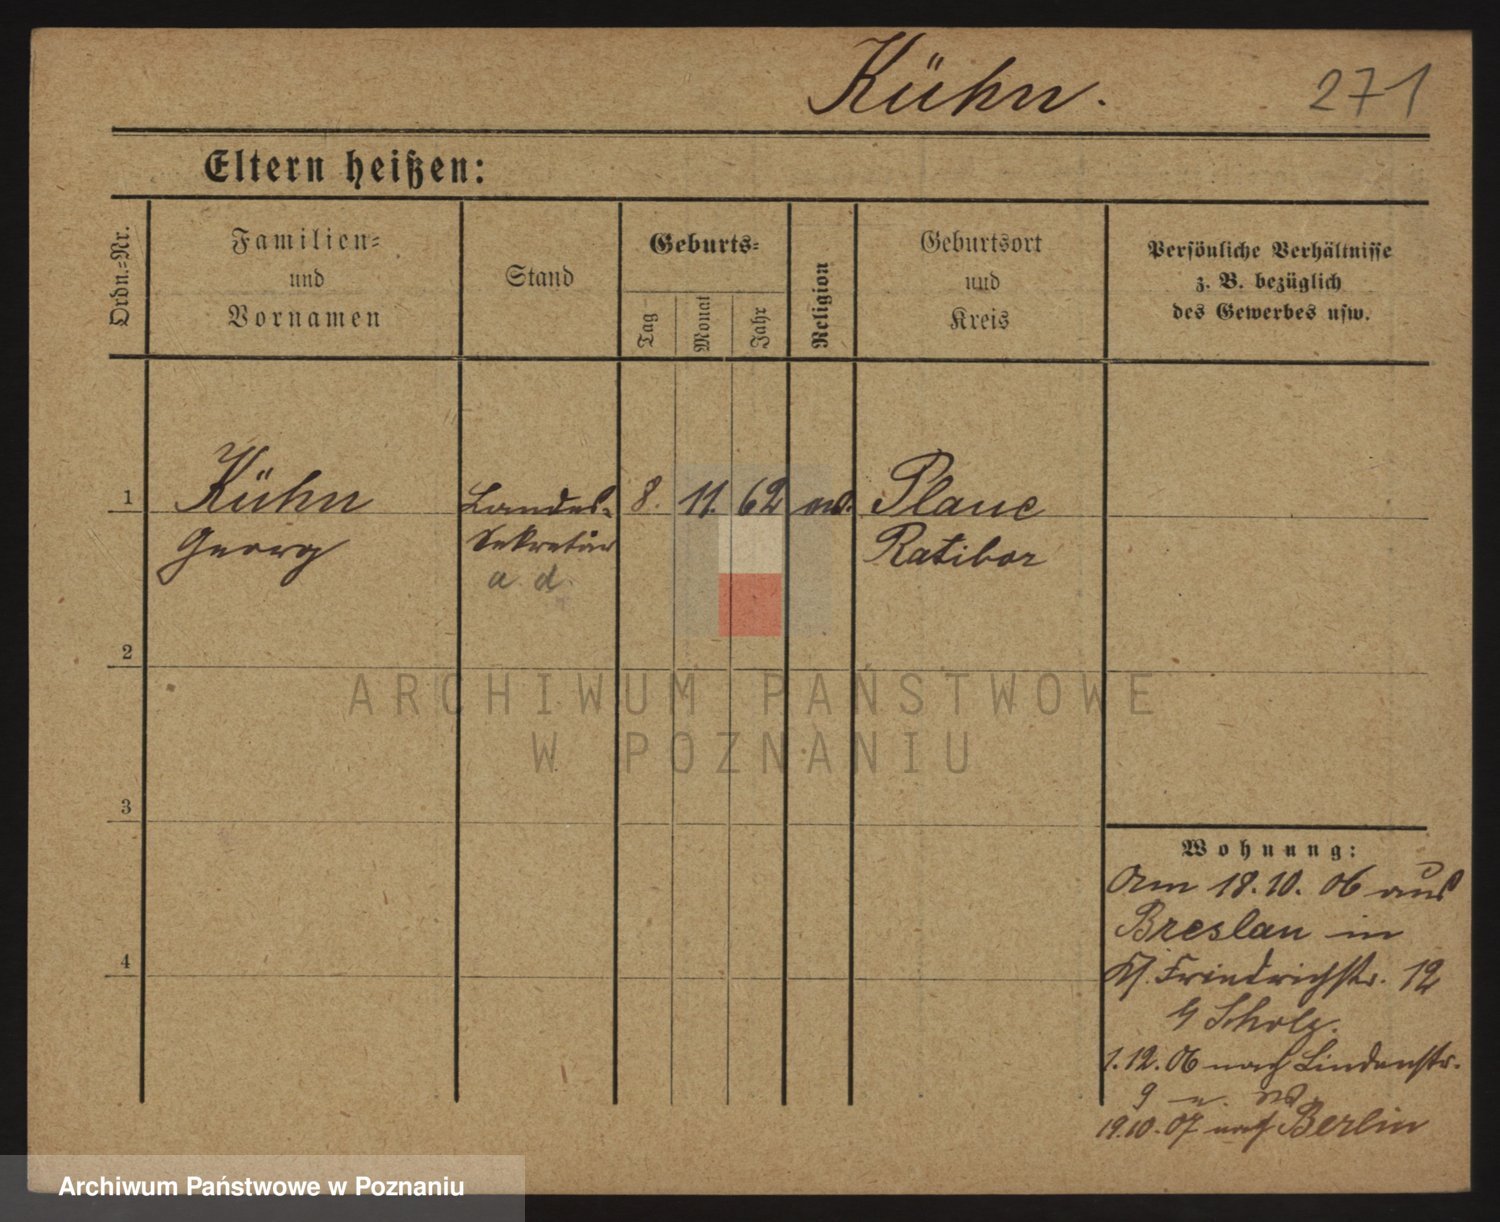 Kühn.
271
Eltern heißen:
Ordn.-Nr.
Familien-
und
Vornamen
Stand
Geburts-
Tag
Monat
Jahr
Religion
Geburtsort
und
Kreis
Persönliche Verhältnisse
z. B. bezüglich
des Gewerbes usw.
1
Kühn
Landes-
8. 11. 62
Plane
Georg
Sekretär
Ratibor
a. d.
2
ARCHIWUM PAŃSTWOWE
W POZNANIU
3
Wohnung:
Am 18.10.06 aus
Breslau in
Friedrichstr. 12
b Scholz.
4
1.12.06 nach Lindenstr.
9
19.10.07 nach Berlin
Archiwum Państwowe w Poznaniu